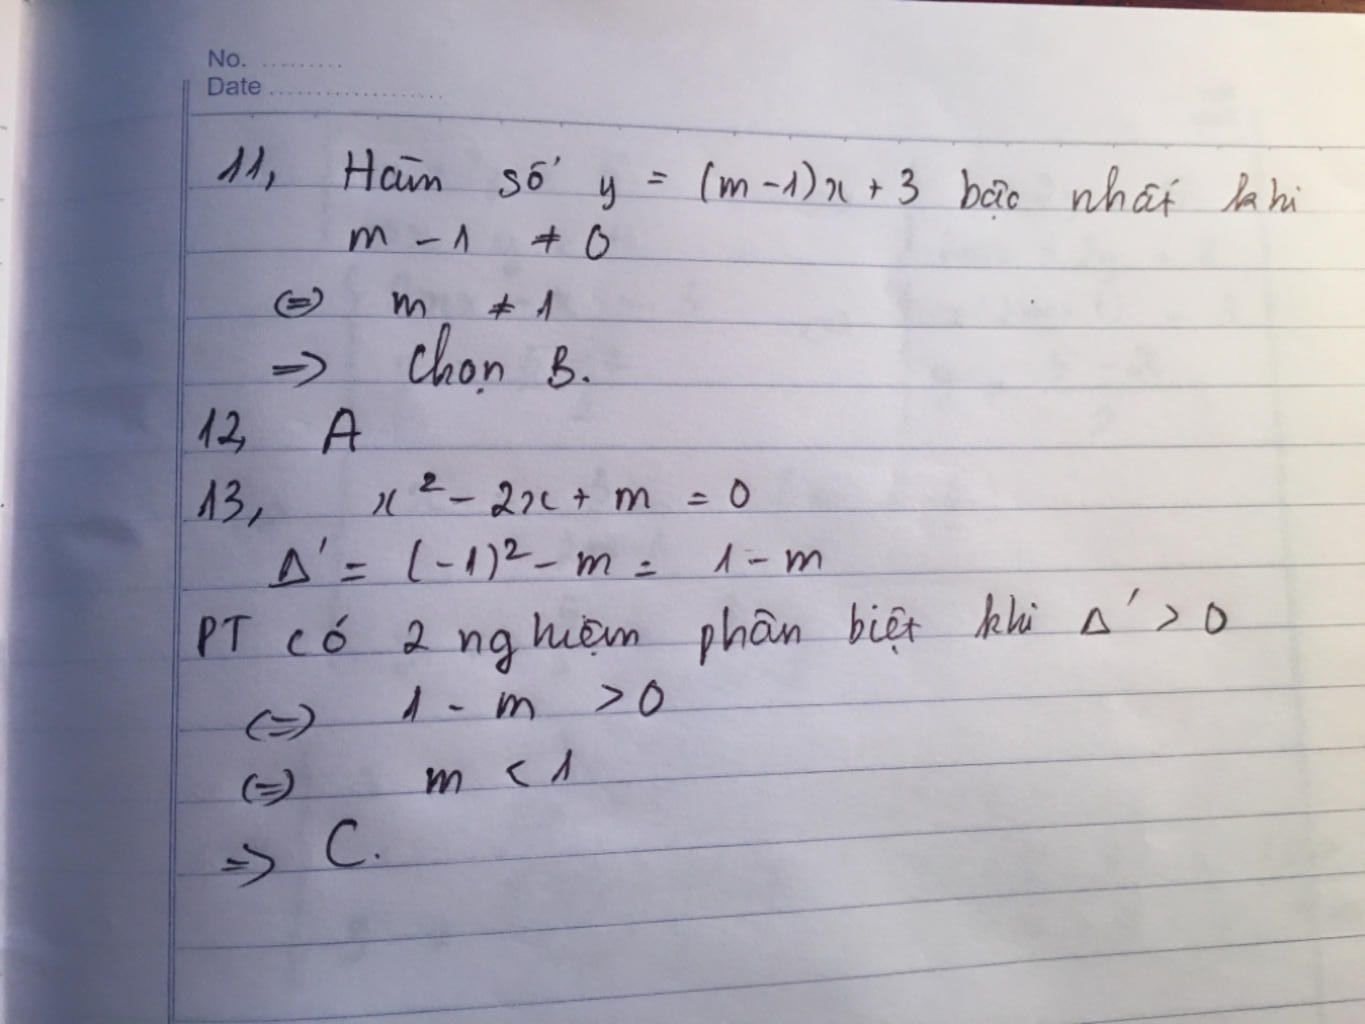 No. .........
Date ...................
11, Hàm số y = (m-1)x + 3 bậc nhất khi
m - 1 ≠ 0
(=) m ≠ 1
=> Chọn B.
12, A
13, x² - 2x + m = 0
Δ' = (-1)² - m = 1 - m
PT có 2 nghiệm phân biệt khi Δ' > 0
(=) 1 - m > 0
(=) m < 1
=> C.